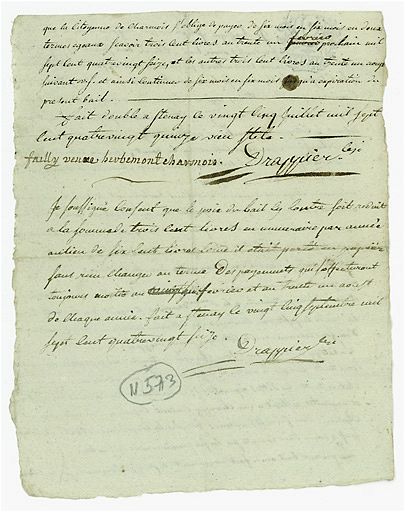 que la Citoyenne de Charmois s'oblige de payer de six mois en six mois en deux
termes egaux sçavoir trois cent livres au trente un prochain mil
sept cent quatrevingt seize, et les autres trois cent livres au trente un aoust
suivant et ainsi continuer de six mois en six mois jusqu'a expiration du
present bail.
fait double a Stenay le vingt cinq juillet mil sept
cent quatrevingt quinze vieu stile
failly veuve herbemont charmois. Drappier
Je soussigné consent que le prix du bail cy contre soit reduit
a la somme de trois cent livres en numeraire par année
aulieu de six cent livres comme il etoit porté en papier
sans rien changer au terme des payements qui s'effectueront
toujours moitié au fevrier et au trente un aoust
de chaque année. fait a Stenay le vingt cinq septembre mil
sept cent quatrevingt seize.
Drappier
N 573